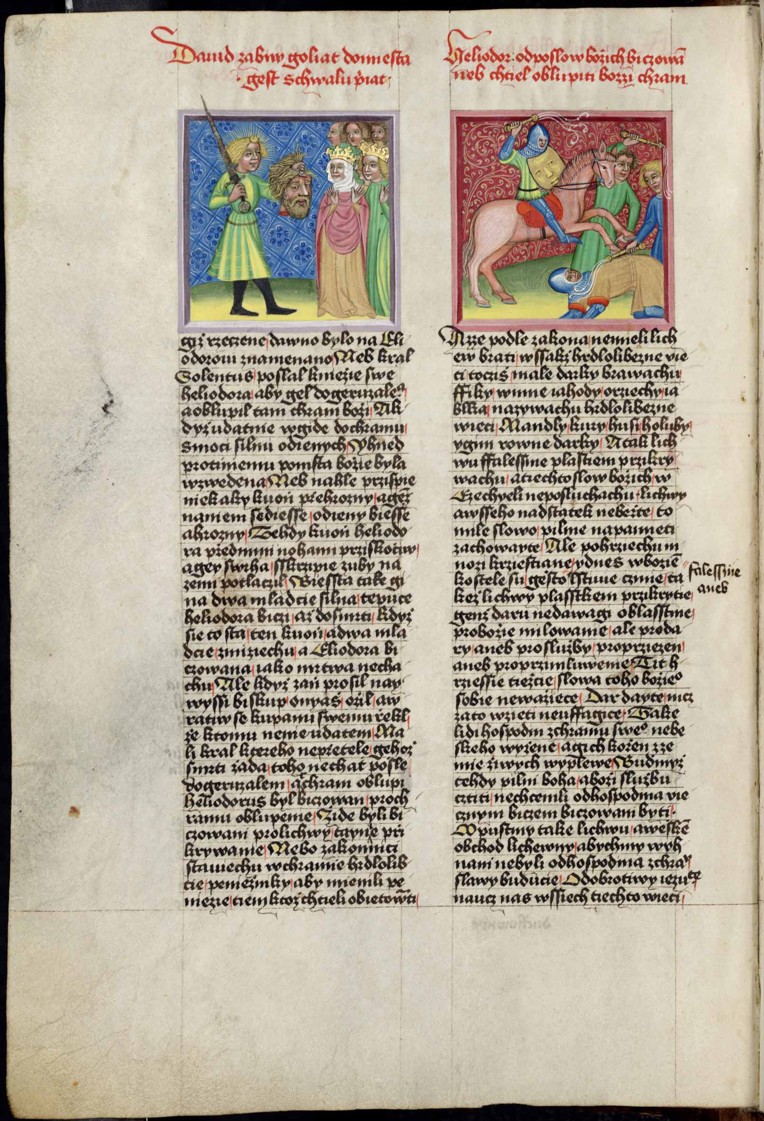 Dauid zabiw goliat donniesta
gest schwalu prziat
cyz rzeczene dawno bylo na Eli
odorowi znamenano Neb kral
Solentus poslal knieze swe
heliodora aby gel dogeruzale
a oblupil tam chram bozi Ak
dyz udatnie wgide dochramu
smoci silnu odienych Yhned
protiniemu pomsta bozie byla
wzwedena Neb nahle przispie
niekaky kuon prehrozny agez
namem sediesse odieny biesse
ahrozny Tehdy kuon heliodo
ra prednimi nohami przisskocziw
agey swrha sskrzipie zuby na
zemi potlaczil Biessta take gi
na dwa mladcie silna tepuce
heliodora biczi az dosmrti kdyz
sie to sta ten kuon adwa mla
dcie zmiziechu a Eliodora bi
czowana iako mrtwa necha
chu Ale kdyz zan prosil nay
wyssi biskup onyas ozil aw
ratiw se kupanu swemu rekl
ze ktomu neme udatem Ma
li kral ktereho nepretele gehoz
smrti zada toho nechat posle
dogeruzalem achram oblupi
heliodorus byl biczowan proch
ramu oblupenie Zide byli bi
czowani prolichwy taynie pri
krywanie Nebo zakonnici
stawiechu wchramie hrdlolib
cie penieznky aby mienili pe
niezie tiem ktoz chtieli obietowati
Heliodor odposlow bozich biczowan
neb chtiel oblupiti bozzi chram
Azze podle zakona nemieli lich
ew brati wssaki hrdlolibezne vie
ci toczis male darky brawachu
ffiky winne iahody orziechy ia
blka nazywachu hrdlolibezne
wieci Mandly kury husi holuby
ygini rowne darky A tak lich
wu ffalessine plastiem przikry
wachu atiechto slow bozich w
Ezechyeli neposluchachu lichwy
awsseho nadstatek neberte to
mile slowo pilnie napamieti
zachowayte Ale pohrziechu m
nozi krzestiane ydnes wbozien
kostele su gesto lstiwie czinie ta
kez lichwy plasstkem przikrytie
genz daru nedawagi oblasstnie
probozie milowanie ale proda
ry aneb prosluzby proprziezen
aneb proprzimluwenie Tit h
rziessie tiezcie slowa toho bozieo
sobie newaziece Dar dayte nicz
zato wzieti neuffagice Take
lidi hospodin zchramu sweo nebe
skeho wyrzene agich korzen zze
mie ziwych wyplewe Budmyz
tehdy pilni boha abozi sluzbu
cztiti nechcemli odhospodina vie
cznym biczem biczowani byti
Opustmy take lichwu awesken
obchod lichewny abychmy wyh
nani nebyli odhospodina zchra
slawy buducie O dobrotiwy iezu
naucz nas wssiech tiechto wieci
falessine
aneb